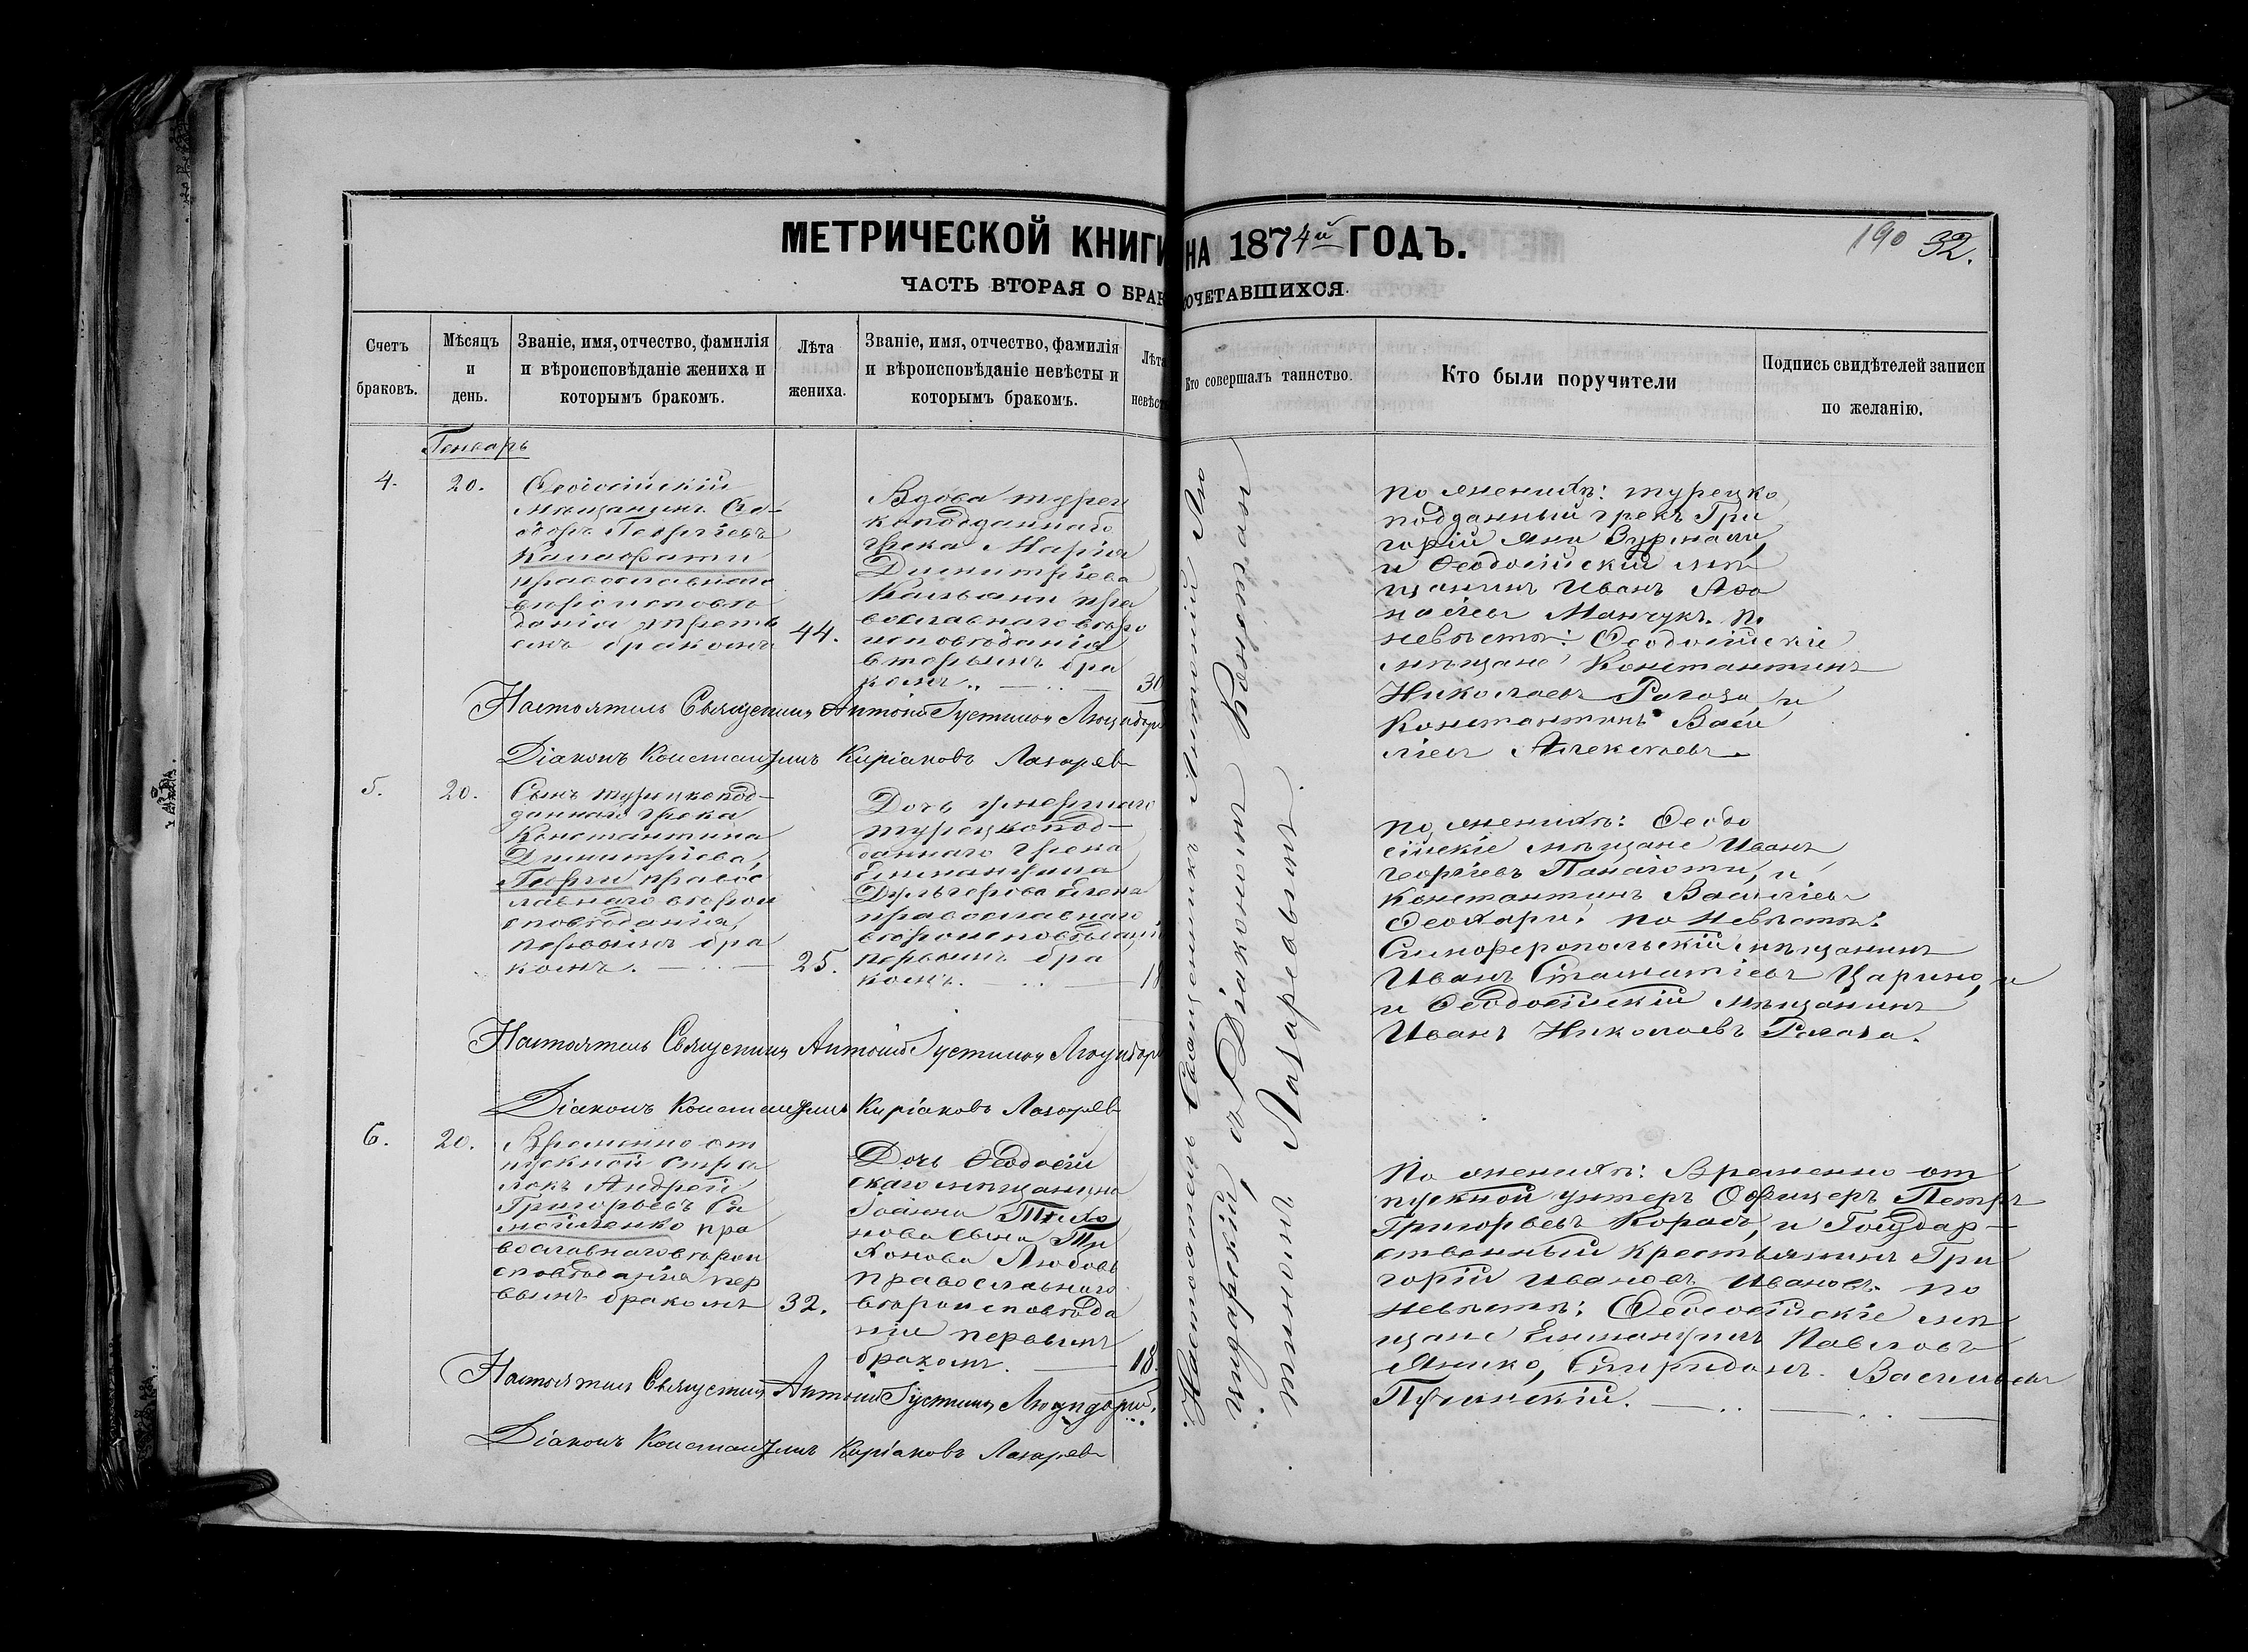 МЕТРИЧЕСКОЙ КНИГИ НА 1874й ГОДЪ.
190 32.
ЧАСТЬ ВТОРАЯ О БРАКОСОЧЕТАВШИХСЯ.
Счетъ браковъ.
Мѣсяцъ и день.
Званіе, имя, отчество, фамилія
и вѣроисповѣданіе жениха и
которымъ бракомъ.
Лѣта жениха.
Званіе, имя, отчество, фамилія
и вѣроисповѣданіе невѣсты и
которымъ бракомъ.
Лѣта невѣст
Кто совершалъ таинство.
Кто были поручители
Подпись свидѣтелей записи
по желанію.
Генварь
4.
20.
Ѳеодосійскій
мѣщанинъ Ѳе-
одоръ Георгіевъ
Калафати
православнаго
вѣроисповѣ
данія треть
имъ бракомъ
44.
Вдова турец
коподданнаго
грека Марія
Димитріева
православнаго вѣро
исповѣданія
вторымъ бра
комъ
30
по женихѣ: турецко
подданный грекъ Гри
горій
и Ѳеодосійскій мѣ-
щанинъ Иванъ Аѳа
насіевъ Манчукъ. по
невѣстѣ: Ѳеодосійскіе
мѣщане Константинъ
Николаевъ Рагоза, и
Константинъ Васи
ліевъ Алексѣевъ.
Настоятель Священникъ Антоній Іустиновъ Люцидар
Діаконъ Константинъ Киріаковъ Лазарев
5.
20.
Сынъ турецкопод-
даннаго грека
Константина
Димитріева,
Георгій правос
лавнаго вѣрои
сповѣданія,
первымъ бра
комъ.
25.
Дочь умершаго
турецкопод-
даннаго грека
Еммануила
Дульгерова Елена
православнаго
вѣроисповѣдані
первымъ бра
комъ.
18
по женихѣ: Ѳеодо
сійскіе мѣщане Иванъ
Георгіевъ Панаіоти, и
Константинъ Василіевъ
Ѳеохари: по невѣстѣ:
Симферопольскій мѣщанинъ
Иванъ Стаматіевъ Царино, и
и Ѳеодосійскій мѣщанинъ
Иванъ Николаевъ Рагоза.
Настоятель Священникъ Антоній Іустиновъ Люцидар
Діаконъ Константинъ Киріаковъ Лазарев
6.
20.
Временно от
пускной Стрѣ
локъ Андрей
Григорьевъ Са
мойленко пра
вославнаго вѣрои
сповѣданія пер
вымъ бракомъ
32.
Дочь Ѳеодосій
скаго мѣщанина
Іоанна Тихо
нова сына Ти
хонова Любовь
православнаго
вѣроисповѣда
нія первымъ
бракомъ.
18.
По женихѣ: Временно от
пускной унтеръ Офицеръ Петръ
Григорьевъ Корабъ, и Государ-
ственный крестьянинъ Гри
горій Ивановъ Ивановъ. по
невѣстѣ: Ѳеодосійскіе мѣ
щане Еммануилъ Павловъ
Янико, Спиридонъ Васильевъ
Настоятель Священникъ Антоній Іустиновъ Люцидарскій.
Діаконъ Константинъ Киріаковъ Лазарев
Настоятель Священникъ Антоній Лю
цидарскій, съ Діакономъ Констан
тиномъ Лазаревымъ.